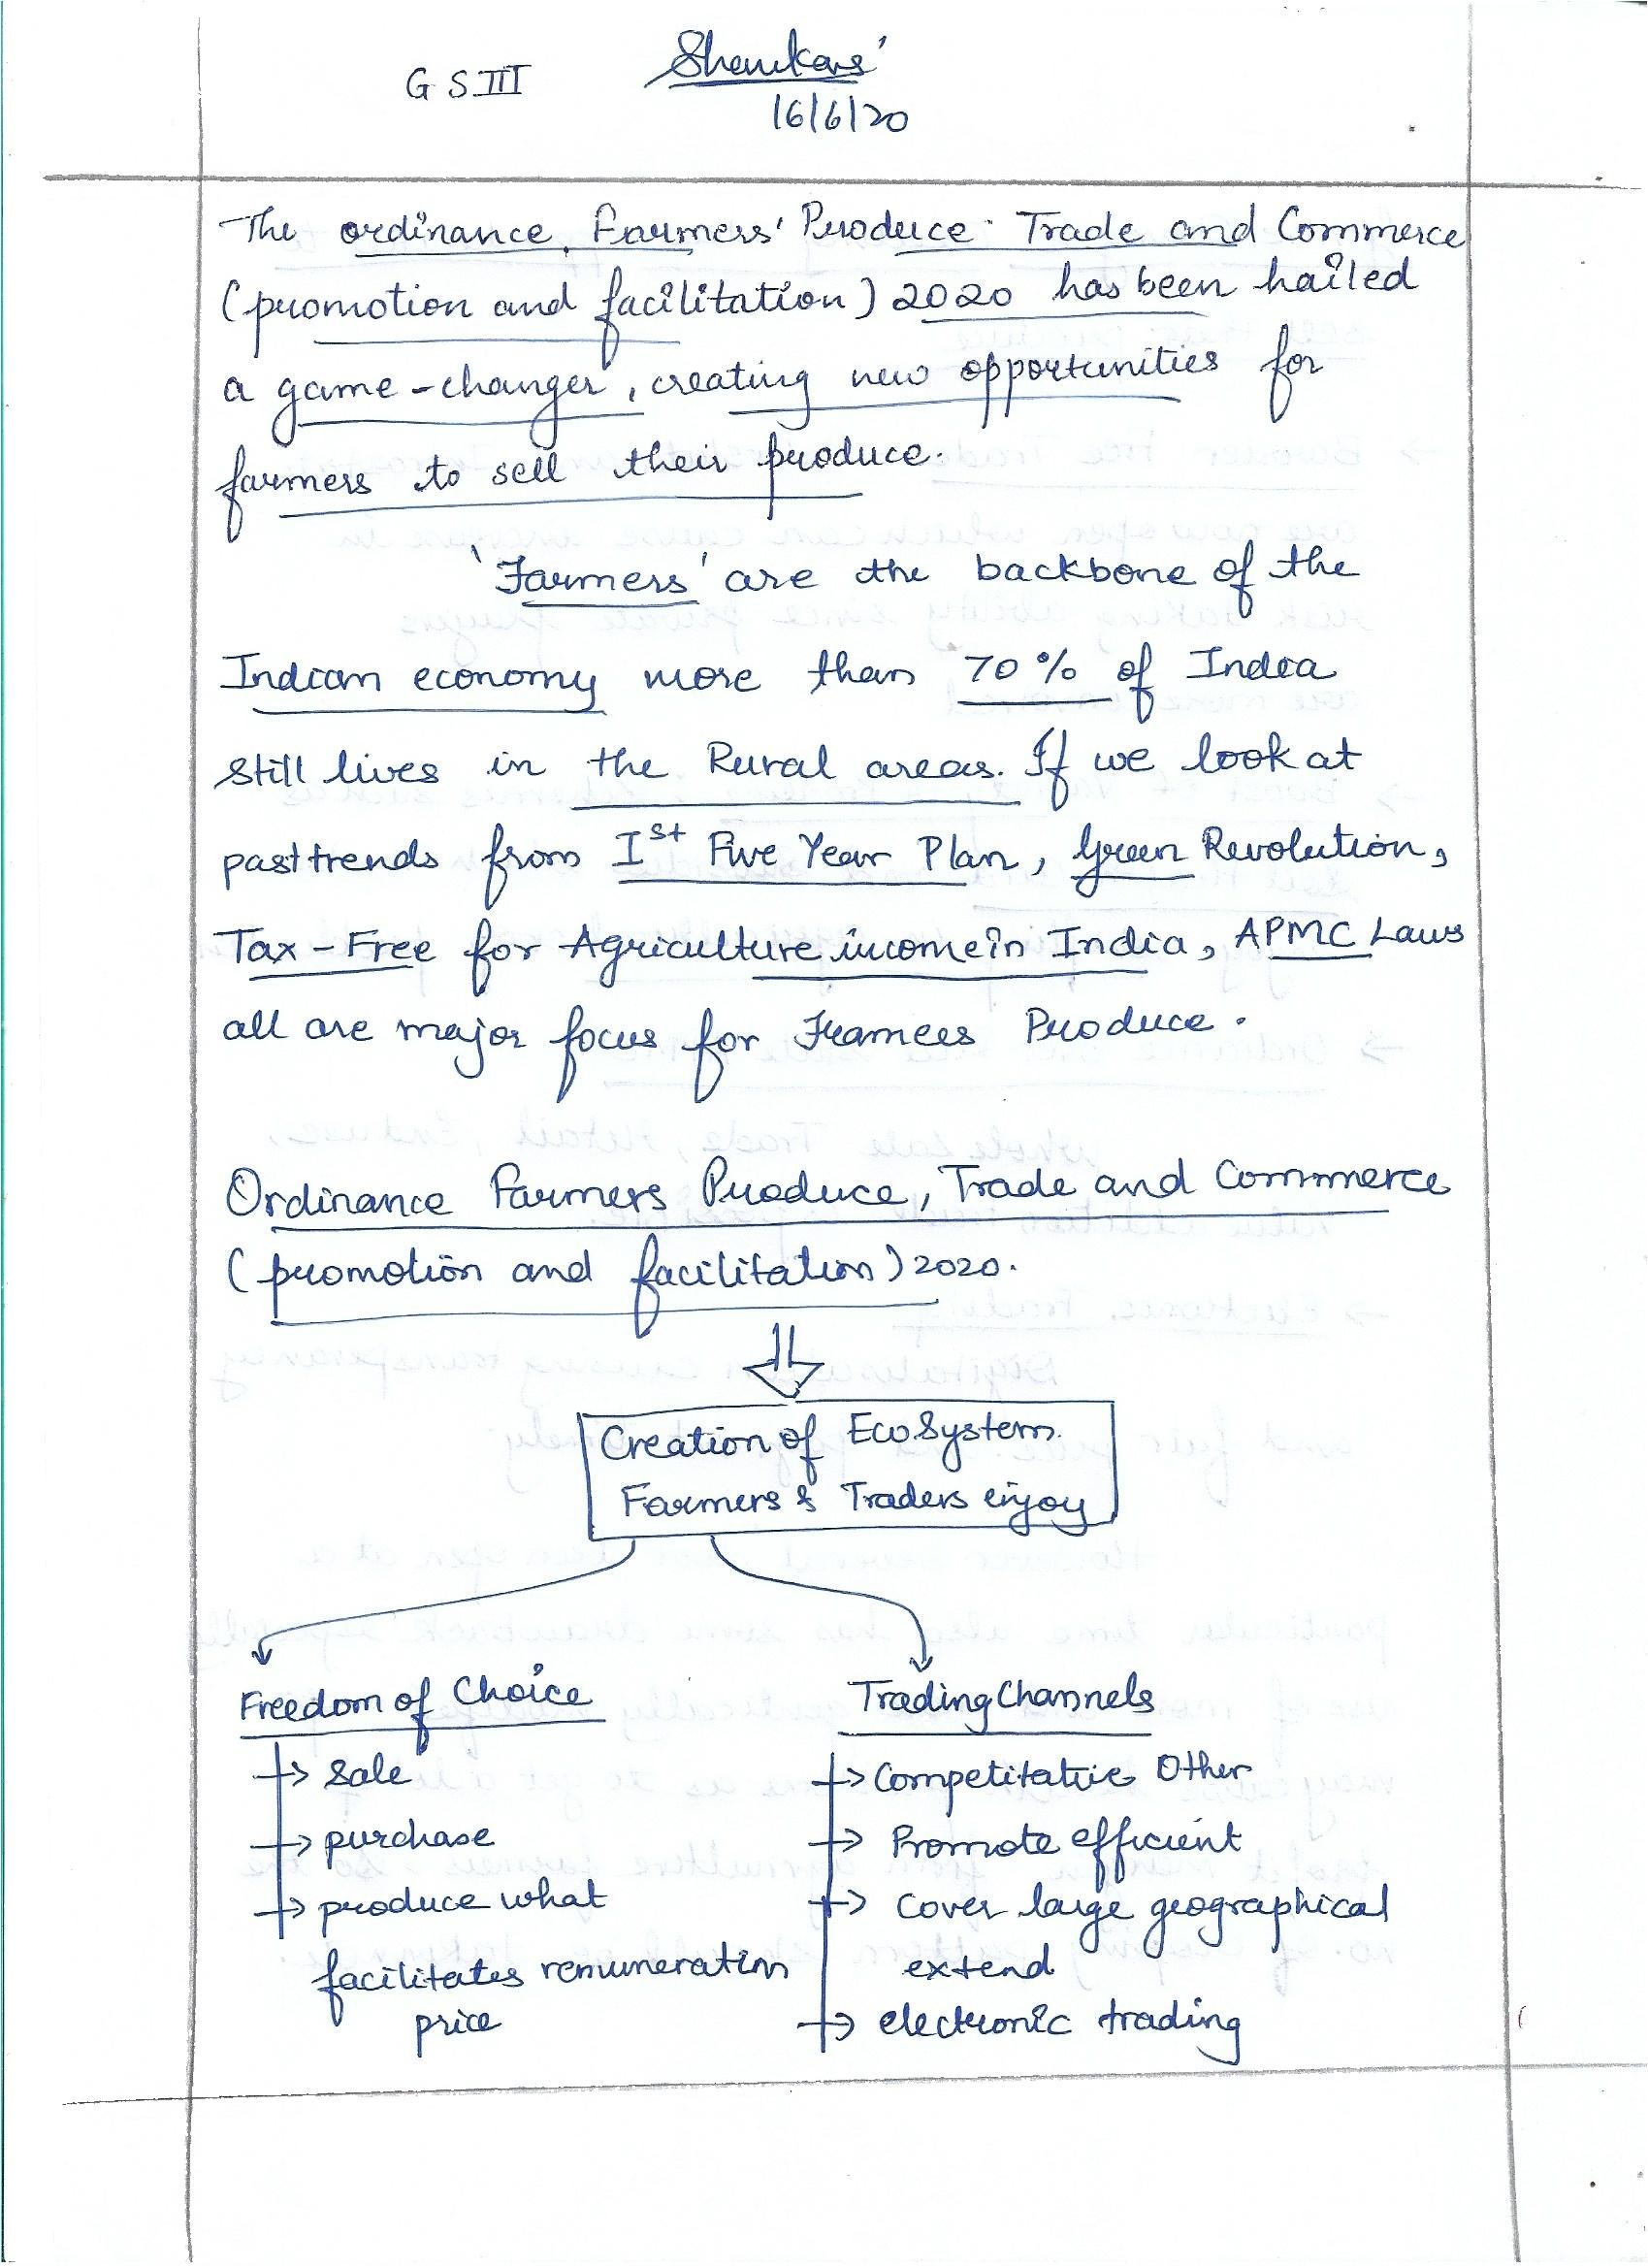 GS III
Shankars'
16/6/20
The ordinance, Farmers' Produce Trade and Commerce
(promotion and facilitation) 2020 has been hailed
a game-changer, creating new opportunities for
farmers to sell their produce.
'Farmers' are the backbone of the
Indian economy more than 70% of India
still lives in the Rural areas. If we look at
past trends from Ist Five Year Plan, Green Revolution,
Tax-Free for Agriculture income in India, APMC Laws
all are major focus for Framees Produce.
Ordinance Farmers Produce, Trade and Commerce
(promotion and facilitation) 2020.
Creation of EcoSystem
Farmers & Traders enjoy
Freedom of Choice
→ Sale
→ purchase
→ produce what
facilitates remuneration
price
Trading Channels
→ Competitative Other
→ Promote efficient
→ Cover large geographical
extend
→ electronic trading